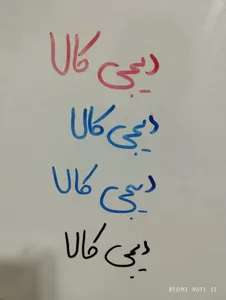 دیجی کالا
دیجی کالا
دیجی کالا
دیجی کالا
REDMI NOTE 11